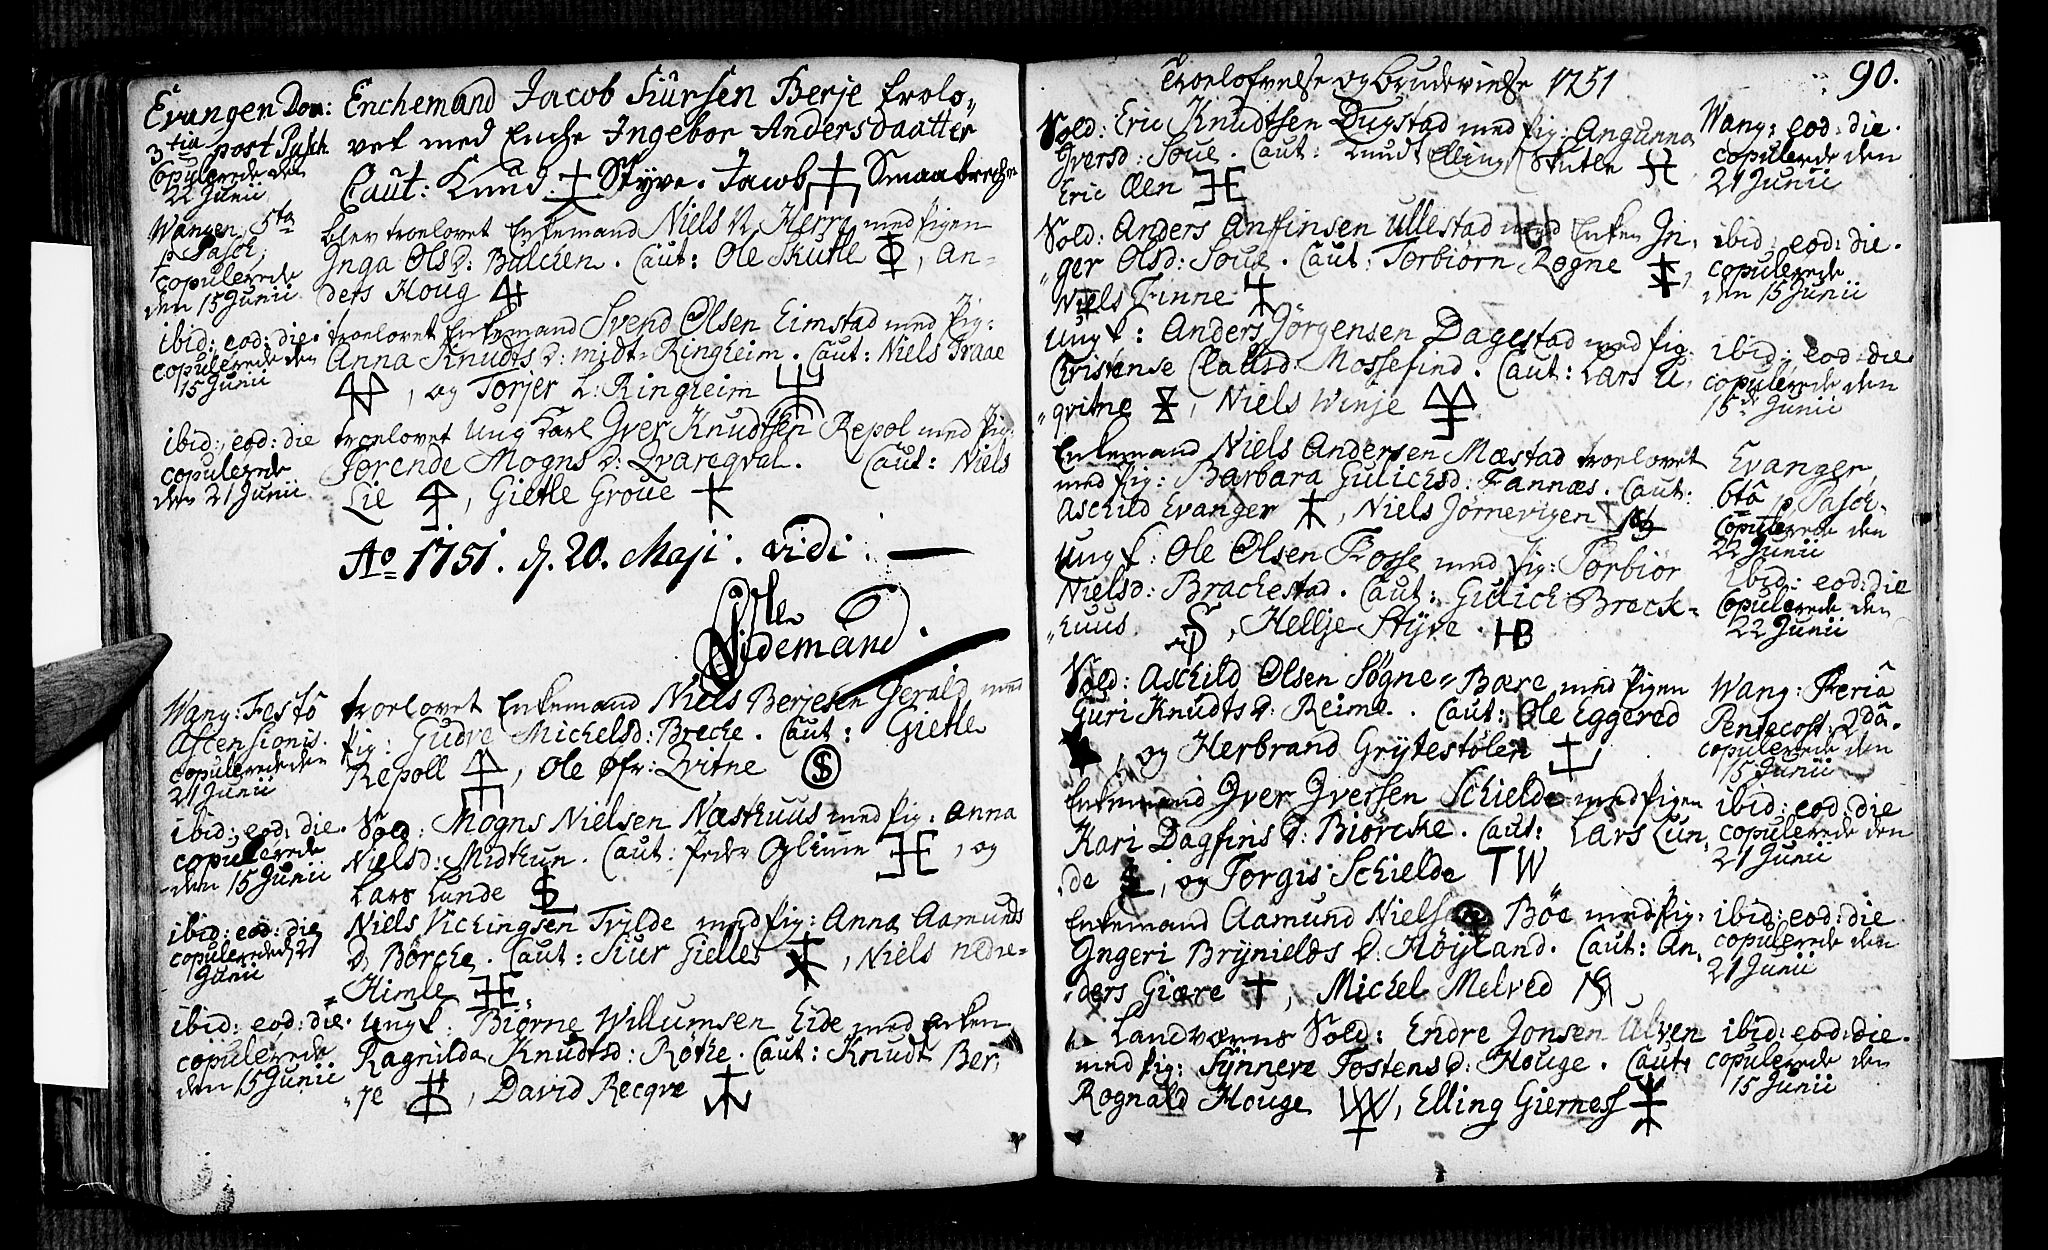 Evangen Dom:
3tia post Pasch.
Copulerede den
22 Junii
Enchemand Jacob Siursen Berje trolo-
vet med Enche Ingebor Andersdaatter
Caut: Knud Styve. Jacob Smaabreche
Wangen, 5ta
p. Pasch,
copulerede
den 15 Junii
blev troelovet Enkemand Niels N. Herre med pigen
Inga Ols d: Bulchen. Caut: Ole Skutle, An-
ders Houg
ibid: eod: die.
copulerede den
15 Junii
troelovet Enkemand Svend Olsen Eimstad med pig:
Anna Knudts d: midt-Ringheim. Caut: Niels Traae
, og Torjer L: Ringheim
ibid: eod: die
copulerede
den 21 Junii
troelovet Ung Karl Iver Knudtsen Repol med pig:
Jorende Mogns d: Qvareqval. Caut: Niels
Lie, Gietle Groue
Ao 1751. d. 20. Maji. vidi.
Tidemand.
Wang: Festo
Ascensionis.
copulerede den
21 Junii
troelovet Enkemand Niels Berjesen Gerald med
pig: Gudve Michelsd: Breche. Caut: Gietle
Repoll, Ole Øfr: Qvitne
ibid: eod: die.
copulerede
den 15 Junii
Sold: Mogns Nielsen Næsthuus med pig: Anna
Nielsd: Midthun. Caut: Peder Glimme, og
Lars Lunde
ibid: eod: die
copulerede d, 21
Junii
Niels Vichingsen Tvilde med pig: Anna Aamunds
D, Børche. Caut: Siur Gielle, Niels nedre-
Himle
ibid: eod: die.
copulerede
den 15 Junii
Ung k: Biørne Willumsen Eide med Enken
Ragnilda Knudtsd: Røthe. Caut: Knudt Ber,
"je, David Recqve
Troelofvelse og Brudevielse 1751
90.
Sold: Eric Knudtsen Dugstad med pig: Angunna
Iversd: Soue. Caut: Knud Elling Skutle
Eric Øen
Wang: eod: die.
copulerede den
21 Junii
Sold: Anders Anffinsen Ullestad med Enken In,
"ger Olsd: Soue. Caut: Torbiørn Rogne,
Niels Finne
ibid: eod: die.
copulerede
den 15 Junii
Ung k: Anders Jørgensen Dagestad med pig:
Christense Claus d: Mossefind. Caut: Lars U,
"qvitne, Niels Winje
ibid: eod: die
copulerede den
15de Junii
Enkemand Niels Andersen Mæstad troelovet
med pig: Barbara Gulichsd: Fannæs. Caut:
Aschild Evanger, Niels Jørnevigen
Evanger,
6ta p Pasch.
Copulerede den
22 Junii
Ung k: Ole Olsen Fosse med pig: Torbiør
Nielsd: Brachestad. Caut: Gulich Breck-
"huus, Hellje Styve. HB
Ibid: eod: die
Copulerede den
22 Junii
Sold: Aschild Olsen Søgne-Bære med pigen
Guri Knudts d: Reime. Caut: Ole Eggered
, og Herbrand Grytestølen
Wang: Feria
Pentecost: 2da.
copulerede den
15 Junii
Enkemand Iver Iversen Schielde med pigen
Kari Dagfins d: Biørcke. Caut: Lars Lun,
"de, og Torgis Schielde TW
ibid: eod: die
copulerede den
21 Junii
Enkemand Aamund Nielsen Bøe med pig:
Ingeri Brynields d: Høyland. Caut: An,
"ders Giære, Michel Melved
ibid: eod: die.
copulerede den
21 Junii
Landværns Sold: Endre Jonsen Ulven
med pig: Synneve Tostens d: Houge. Caut:
Rognald Houge, Elling Gierness
ibid: eod: die.
copulerede den
15 Junii